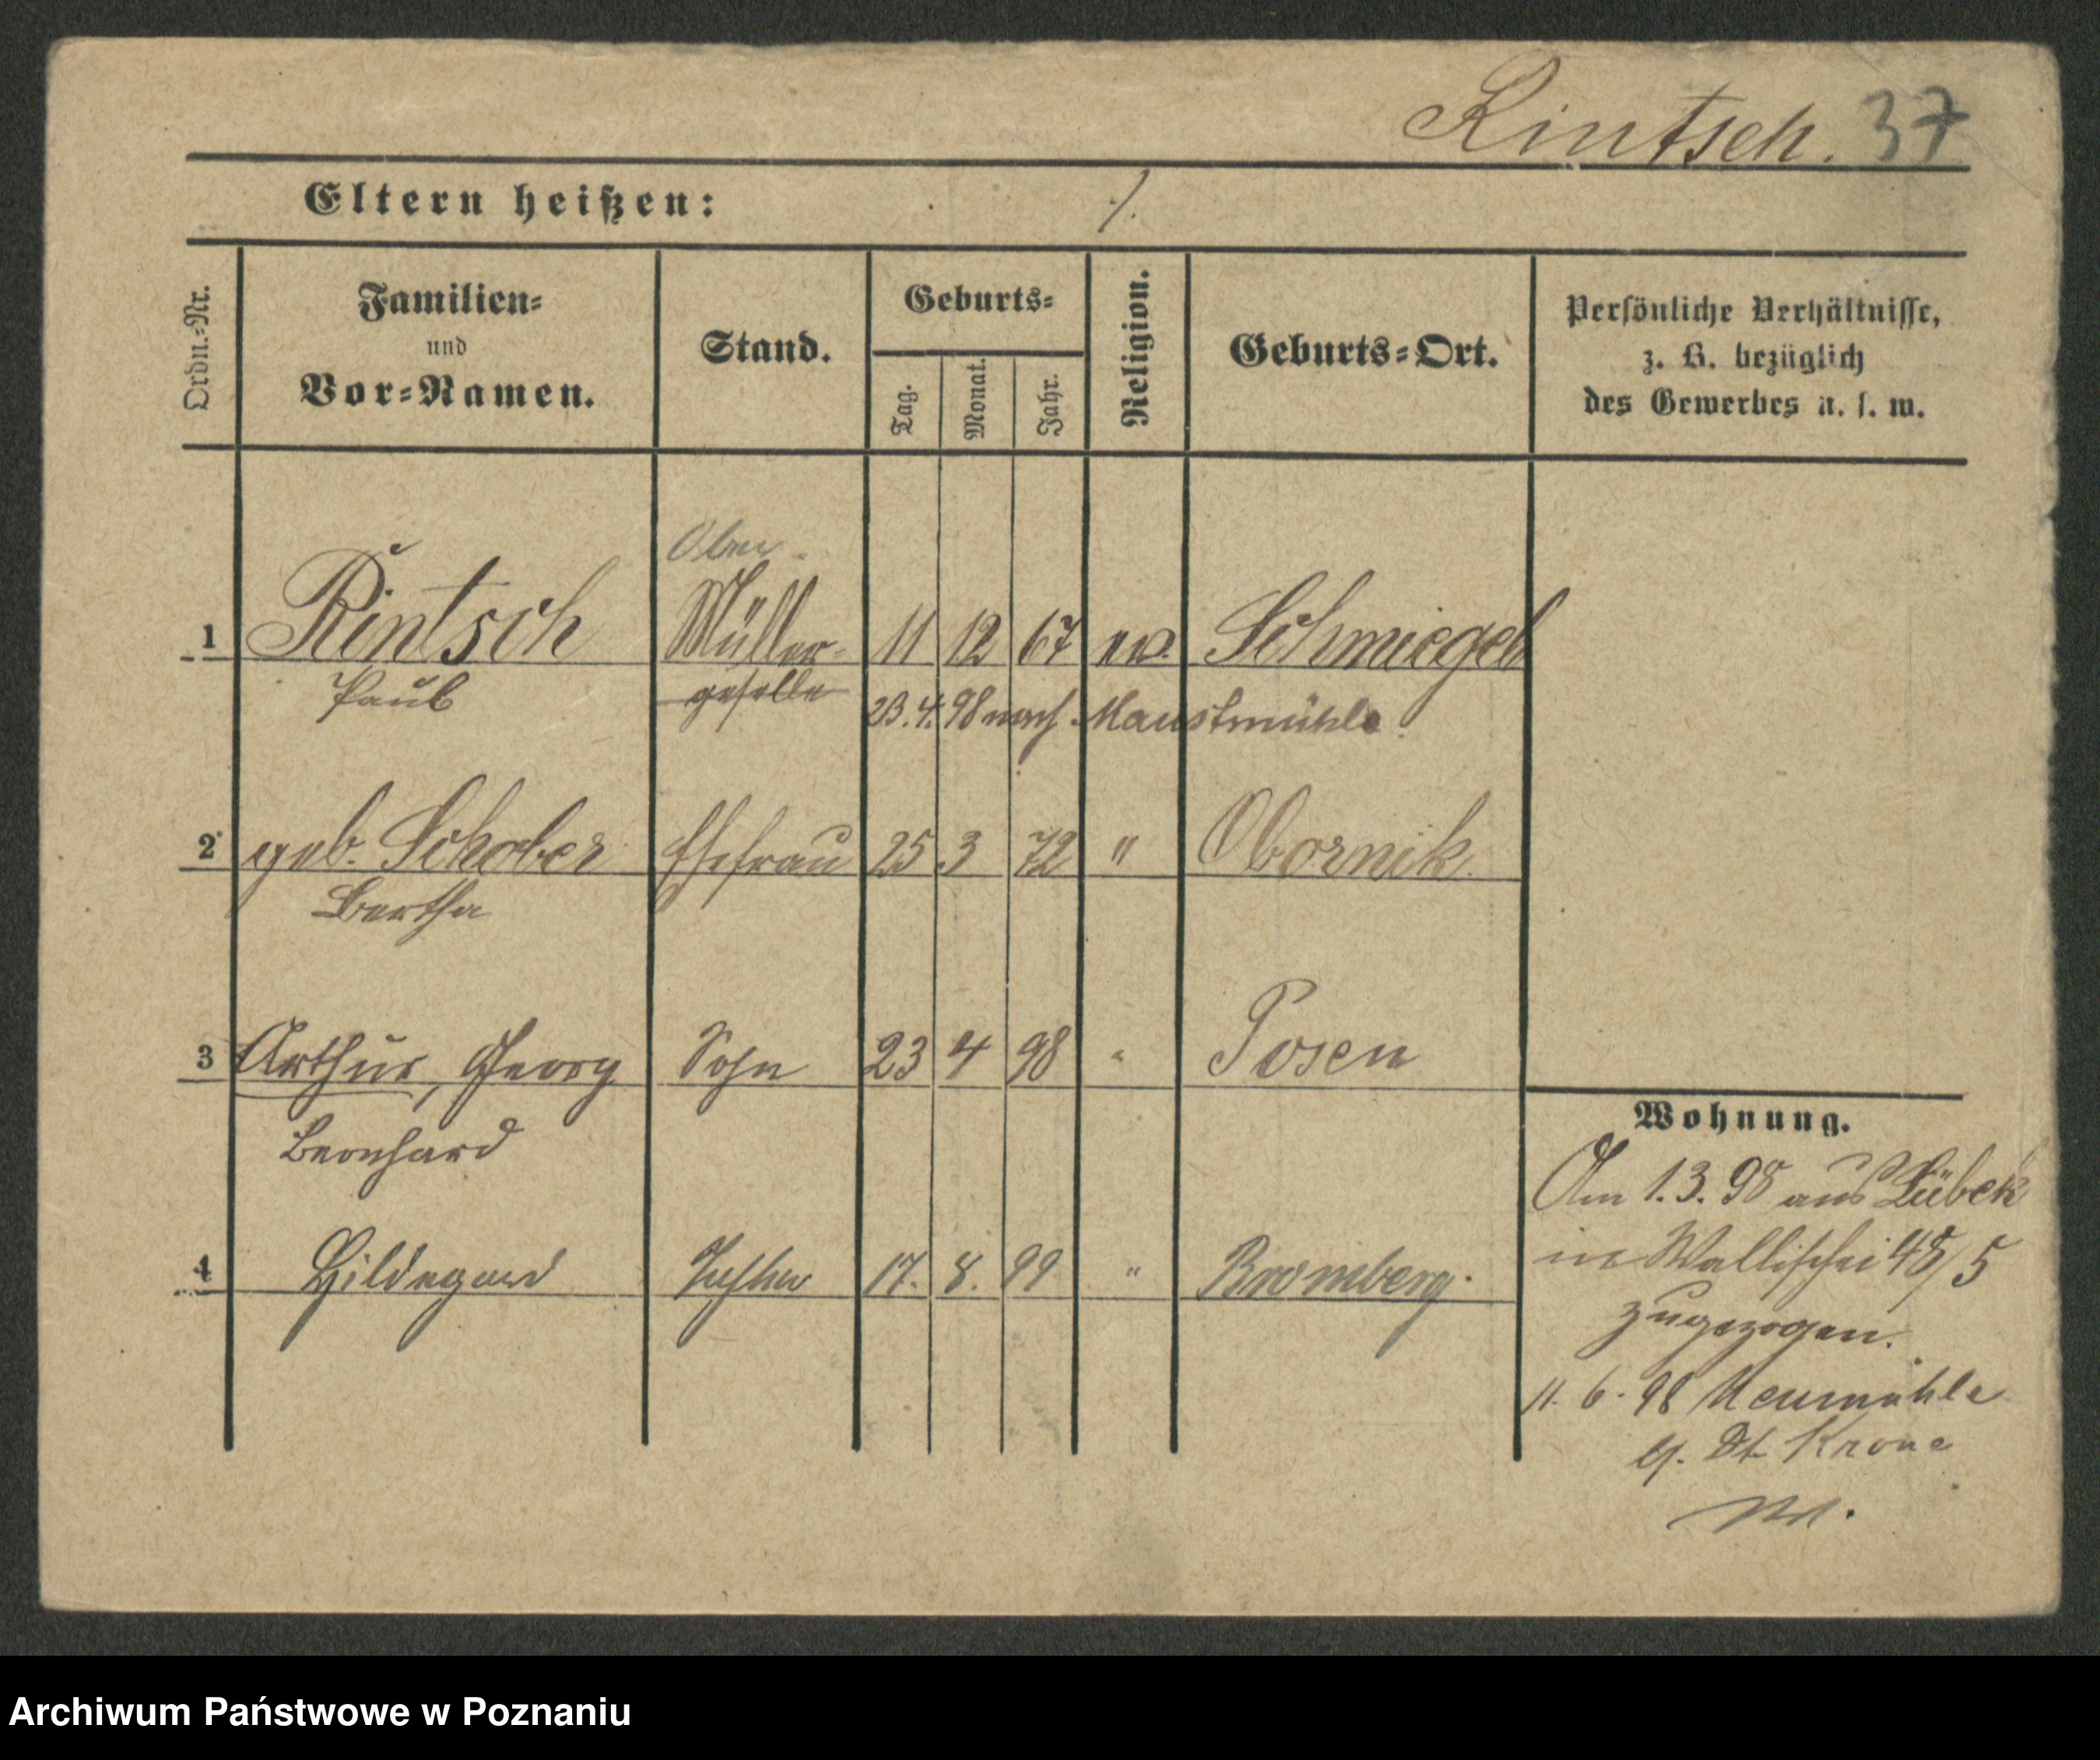 Rintsch. 37
Eltern heißen: ./.
Ordn.-Nr. Familien- und Vor-Namen. Stand. Geburts- Tag. Monat. Jahr. Religion. Geburts-Ort. Persönliche Verhältnisse, z. B. bezüglich des Gewerbes u. s. w.
Ober-
1 Rintsch Müller- 11 12 67 ev. Schmiegel
Paul geselle 23.4.98 nach Maustmühle.
2 geb. Schober Ehefrau 25 3 72 " Obornik.
Bertha
3 Arthur, Georg Sohn 23 4 98 " Posen
Leonhard
4 Hildegard Tochter 17. 8. 99 " Bromberg.
Wohnung.
Am 1.3.98 aus Lübek
in Wallischei 48/5
zugezogen.
11. 6. 98 Neumühle
Dt Krone